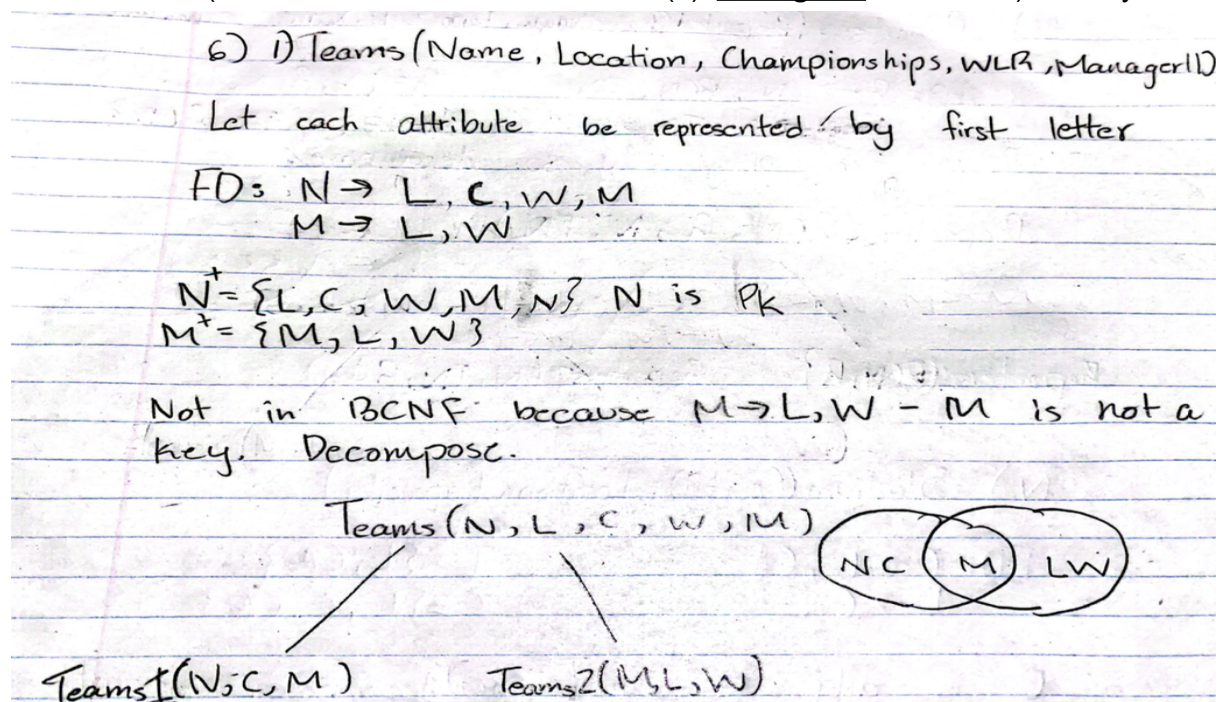 6) 1) Teams (Name, Location, Championships, WLR, ManagerID
Let each attribute be represented by first letter
FD: N → L, C, W, M
M → L, W
N⁺ = {L, C, W, M, N} N is PK
M⁺ = {M, L, W}
Not in BCNF because M → L, W - M is not a
key. Decompose.
Teams (N, L, C, W, M)
NC M LW
Teams1(N, C, M) Teams2(M, L, W)